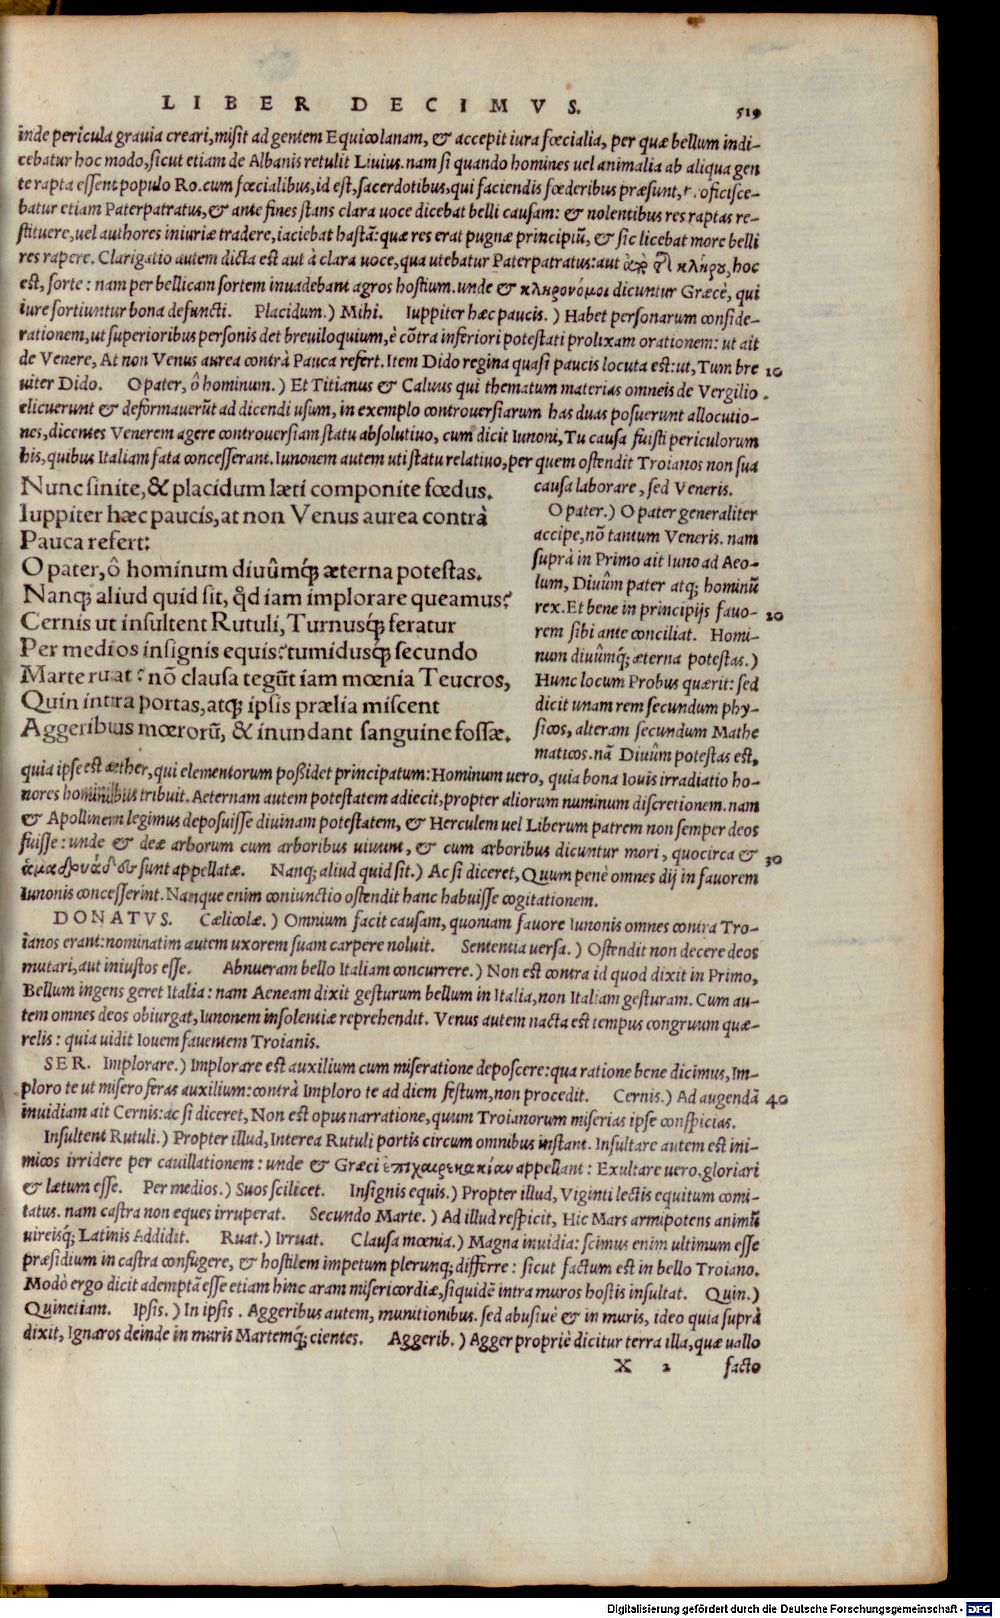 LIBER DECIMVS. 519
inde pericula grauia creari, misit ad gentem Equicolanam, & accepit iura fœcialia, per quæ bellum indi-
cebatur hoc modo, sicut etiam de Albanis retulit Liuius. nam si quando homines uel animalia ab aliqua gen
te rapta essent populo Ro. cum fœcialibus, id est, sacerdotibus, qui faciendis fœderibus præsunt, oficisce-
batur etiam Paterpatratus, & ante fines stans clara uoce dicebat belli causam: & nolentibus res raptas re-
stituere, uel authores iniuriæ tradere, iaciebat hastã: quæ res erat pugnæ principiũ, & sic licebat more belli
res rapere. Clarigatio autem dicta est aut à clara uoce, qua utebatur Paterpatratus: aut κλήρου, hoc
est, sorte: nam per bellicam sortem inuadebant agros hostium. unde & κληρονόμοι dicuntur Græcè, qui
iure sortiuntur bona defuncti. Placidum.) Mihi. Iuppiter hæc paucis.) Habet personarum conside-
rationem, ut superioribus personis det breuiloquium, è cõtra inferiori potestati prolixam orationem: ut ait
de Venere, At non Venus aurea contrà Pauca refert. Item Dido regina quasi paucis locuta est: ut, Tum bre 10
uiter Dido. O pater, ô hominum.) Et Titianus & Caluus qui thematum materias omneis de Vergilio
elicuerunt & deformauerũt ad dicendi usum, in exemplo controuersiarum has duas posuerunt allocutio-
nes, dicentes Venerem agere controuersiam statu absolutiuo, cum dicit Iunoni, Tu causa fuisti periculorum
his, quibus Italiam fata concesserant. Iunonem autem uti statu relatiuo, per quem ostendit Troianos non sua
causa laborare, sed Veneris.
Nunc sinite, & placidum læti componite fœdus.
Iuppiter hæc paucis, at non Venus aurea contrà
Pauca refert:
O pater, ô hominum diuûmq́; æterna potestas.
Nanq; aliud quid sit, q̊d iam implorare queamus?
Cernis ut insultent Rutuli, Turnusq́; feratur
Per medios insignis equis? tumidusq́; secundo
Marte ruat? nõ clausa tegũt iam mœnia Teucros,
Quin intra portas, atq; ipsis prælia miscent
Aggeribus mœrorũ, & inundant sanguine fossæ.
O pater.) O pater generaliter
accipe, nõ tantum Veneris. nam
suprà in Primo ait Iuno ad Aeo-
lum, Diuûm pater atq; hominũ
rex. Et bene in principijs fauo- 20
rem sibi ante conciliat. Homi-
num diuûmq́; æterna potestas.)
Hunc locum Probus quærit: sed
dicit unam rem secundum phy-
sicos, alteram secundum Mathe
maticos. nã Diuûm potestas est,
quia ipse est æther, qui elementorum poßidet principatum: Hominum uero, quia bona Iouis irradiatio ho-
nores hominibus tribuit. Aeternam autem potestatem adiecit, propter aliorum numinum discretionem. nam
& Apollinem legimus deposuisse diuinam potestatem, & Herculem uel Liberum patrem non semper deos
fuisse: unde & deæ arborum cum arboribus uiuunt, & cum arboribus dicuntur mori, quocirca & 30
ἁμαδρυάδες sunt appellatæ. Nanq; aliud quid sit.) Ac si diceret, Quum penè omnes dij in fauorem
Iunonis concesserint. Nanque enim coniunctio ostendit hanc habuisse cogitationem.
DONATVS. Cælicolæ.) Omnium facit causam, quoniam fauore Iunonis omnes contra Tro-
ianos erant: nominatim autem uxorem suam carpere noluit. Sententia uersa.) Ostendit non decere deos
mutari, aut iniustos esse. Abnueram bello Italiam concurrere.) Non est contra id quod dixit in Primo,
Bellum ingens geret Italia: nam Aeneam dixit gesturum bellum in Italia, non Italiam gesturam. Cum au-
tem omnes deos obiurgat, Iunonem insolentiæ reprehendit. Venus autem nacta est tempus congruum quæ-
relis: quia uidit Iouem fauentem Troianis.
SER. Implorare.) Implorare est auxilium cum miseratione deposcere: qua ratione bene dicimus, Im-
ploro te ut misero feras auxilium: contrà Imploro te ad diem festum, non procedit. Cernis.) Ad augendã 40
inuidiam ait Cernis: ac si diceret, Non est opus narratione, quum Troianorum miserias ipse conspicias.
Insultent Rutuli.) Propter illud, Interea Rutuli portis circum omnibus instant. Insultare autem est ini-
micos irridere per cauillationem: unde & Græci ἐπιχαιρεκακίαν appellant: Exultare uero, gloriari
& lætum esse. Per medios.) Suos scilicet. Insignis equis.) Propter illud, Viginti lectis equitum comi-
tatus. nam castra non eques irruperat. Secundo Marte.) Ad illud respicit, Hic Mars armipotens animũ
uireisq́; Latinis Addidit. Ruat.) Irruat. Clausa mœnia.) Magna inuidia: scimus enim ultimum esse
præsidium in castra confugere, & hostilem impetum plerunq; differre: sicut factum est in bello Troiano.
Modò ergo dicit ademptã esse etiam hinc aram misericordiæ, siquidẽ intra muros hostis insultat. Quin.)
Quinetiam. Ipsis.) In ipsis. Aggeribus autem, munitionibus. sed abusiuè & in muris, ideo quia suprà
dixit, Ignaros deinde in muris Martemq́; cientes. Aggerib.) Agger propriè dicitur terra illa, quæ uallo
X 2 facto
Digitalisierung gefördert durch die Deutsche Forschungsgemeinschaft - DFG